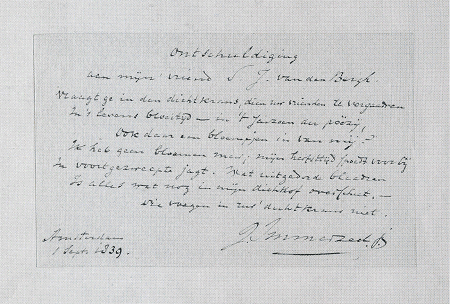 Ontschuldiging
aan mijn' vriend S. J. van den Bergh.
Vraagt ge in den dichtkrans, dien uw vrienden te vergaadren
In 's levens bloeitijd – in 't der pöezij,
Ook daar een bloempjen in van mij? –
Ik heb geen bloemen meer; mijn herfsttijd spoedt voorbij
In voortgezweepte jagt. Wat uitgedord blaadren
Is alles wat nog in mijn dichthof overschiet. –
Die voegen in uw' dichtkrans niet.
J. Immerzeel, jr.
Amsterdam
1 Sept. 1839.